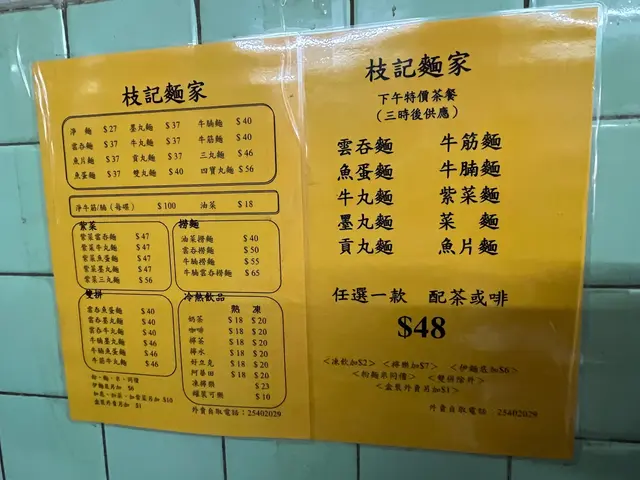 枝記麵家
淨 麵 $27 墨丸麵 $37 牛腩麵 $40
雲吞麵 $37 牛丸麵 $37 牛筋麵 $40
魚片麵 $37 貢丸麵 $37 三丸麵 $46
魚蛋麵 $37 雙丸麵 $40 四寶丸麵 $56
淨牛筋/腩(每碟) $100 油菜 $18
紫菜
紫菜雲吞麵 $47
紫菜牛丸麵 $47
紫菜魚蛋麵 $47
紫菜墨丸麵 $47
紫菜三丸麵 $56
撈麵
油菜撈麵 $40
雲吞撈麵 $50
牛腩撈麵 $55
牛腩雲吞撈麵 $65
雙拼
雲吞魚蛋麵 $40
雲吞墨丸麵 $40
雲吞牛丸麵 $40
牛腩墨丸麵 $46
牛腩魚蛋麵 $46
牛筋牛丸麵 $46
冷熱飲品
熱 凍
奶茶 $18 $20
咖啡 $18 $20
檸茶 $18 $20
檸水 $18 $20
好立克 $18 $20
阿華田 $18 $20
凍檸樂 $23
罐裝可樂 $10
粉、麵、米、同價
伊麵底另加 $6
盒裝外賣另加 $1
外賣自取電話:25402029
枝記麵家
下午特價茶餐
(三時後供應)
雲吞麵 牛筋麵
魚蛋麵 牛腩麵
牛丸麵 紫菜麵
墨丸麵 菜 麵
貢丸麵 魚片麵
任選一款 配茶或啡
$48
<凍飲加$2> <檸樂加$7> <伊麵底加$6>
<粉麵米同價> <雙拼除外>
<盒裝外賣另加$1>
外賣自取電話 25402029